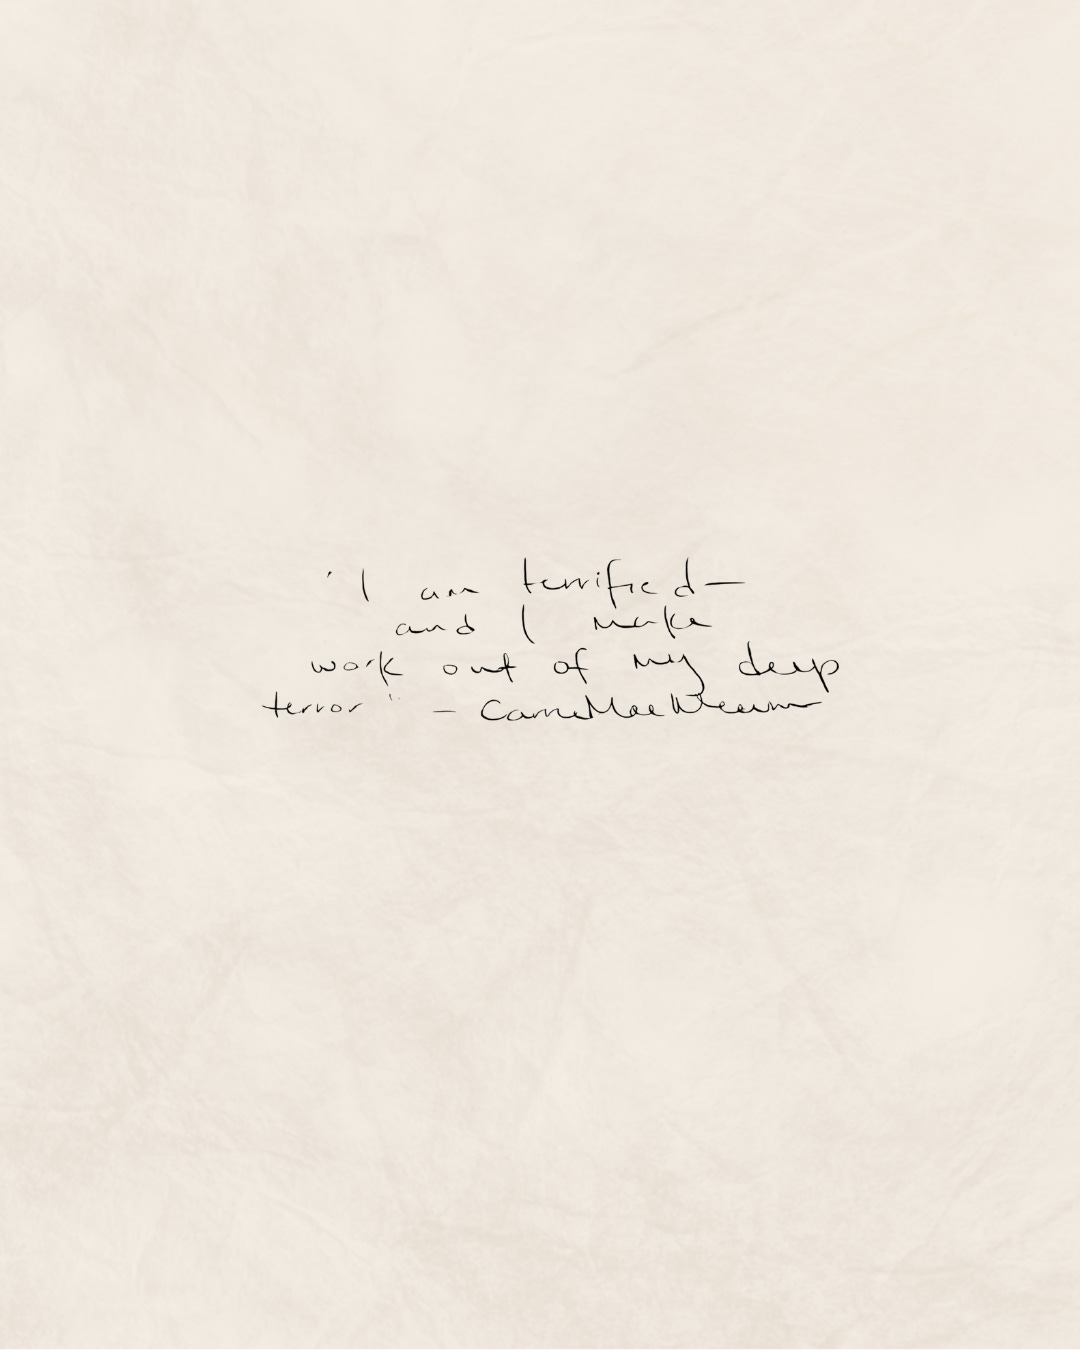 'I am terrified—
and I make
work out of my deep
terror" – Carrie Mae Weems